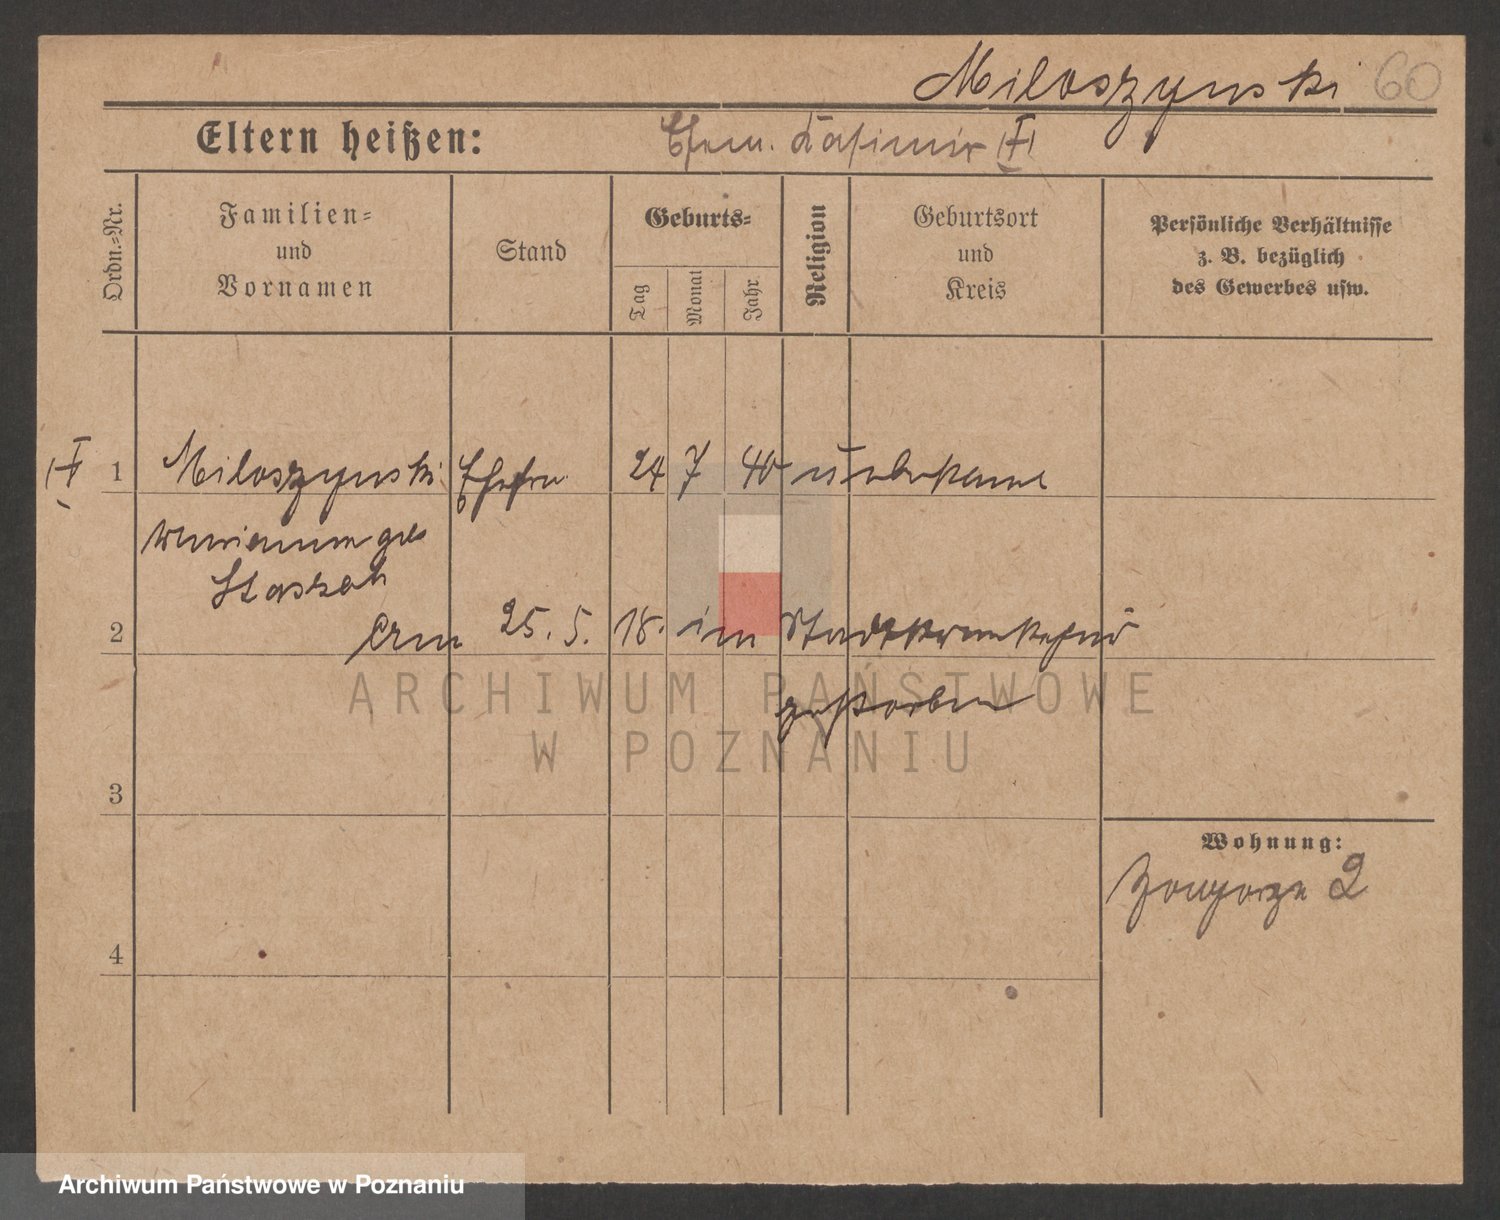 Miloszynski 60
Eltern heißen: Ehem. Kasimir (†)
Ordn.=Nr.
Familien=
und
Vornamen
Stand
Geburts=
Tag
Monat
Jahr
Religion
Geburtsort
und
Kreis
Persönliche Verhältnisse
z. B. bezüglich
des Gewerbes usw.
(†) 1 Miloszynski Ehefr. 24 7 40 unbekannt
Marianna geb
Staszak
2 Am 25. 5. 18. im Stadtkrankenhs
gestorben
ARCHIWUM PAŃSTWOWE
W POZNANIU
3
Wohnung:
Zagorze 2
4
Archiwum Państwowe w Poznaniu